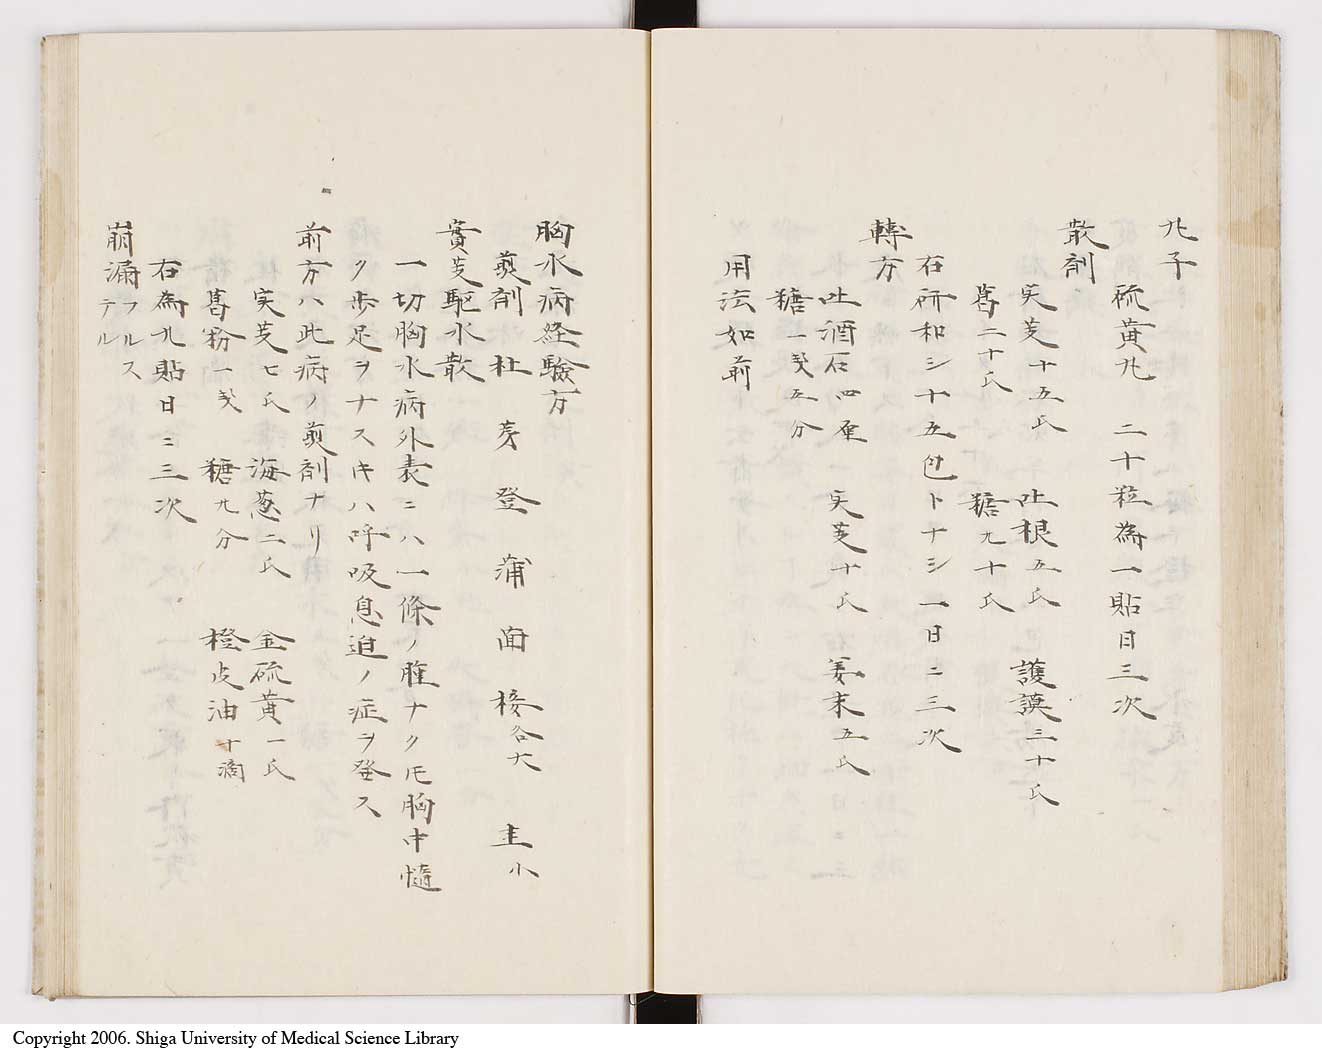 丸子
硫黄丸 二十粒為一貼日三次
散剤
実芰十五氏 吐根五氏 護謨三十氏
葛二十氏 糖九十氏
右研和シ十五包トナシ一日ニ三次
轉方
吐酒石四 実芰十氏 姜末五氏
糖一戔五分
用法如前
胸水病経驗方
煎剤 杜 芽 登 蒲 面 接各大 圭小
實芰駆水散
一切胸水病外表ニハ一條ノ腫ナク𪜈胸中
ク歩足ヲナスキハ呼吸息迫ノ症ヲ發ス
前方ハ此病ノ煎剤ナリ
実芰七氏 海葱二氏 金硫黄一氏
葛粉一戔 糖九分 橙皮油十滴
右為丸貼日ニ三次
崩漏フルス
テル
Copyright 2006. Shiga University of Medical Science Library